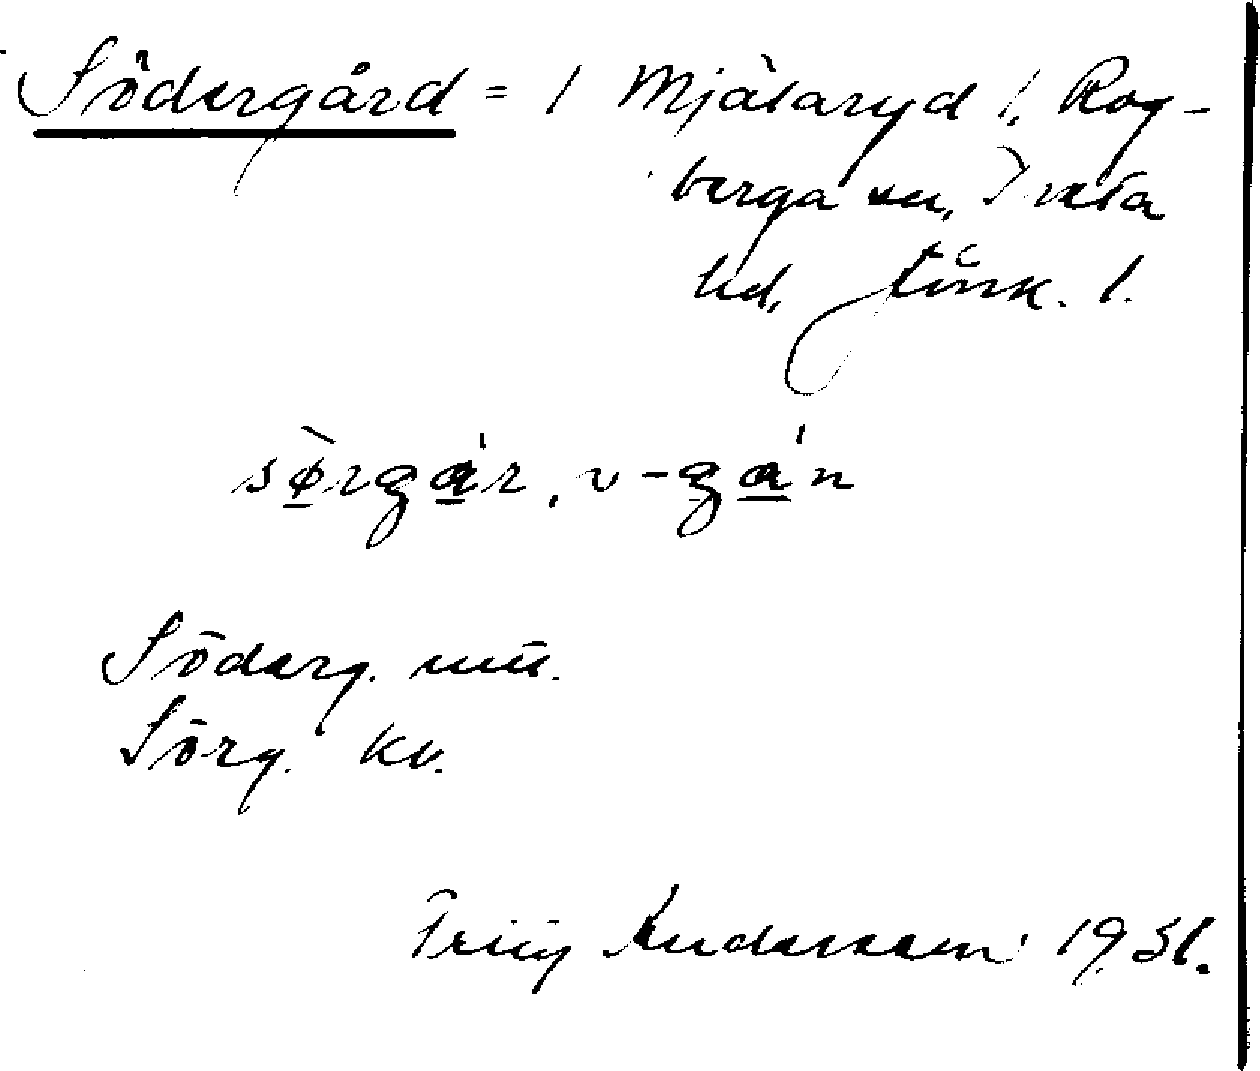 Södergård = 1 Mjälaryd 1, Rog-
berga sn, Tveta
hd, Jönk. l.
sø̀rgár, v -gán
Söderg. mū.
Sörg. kv.
Andersson 1931.